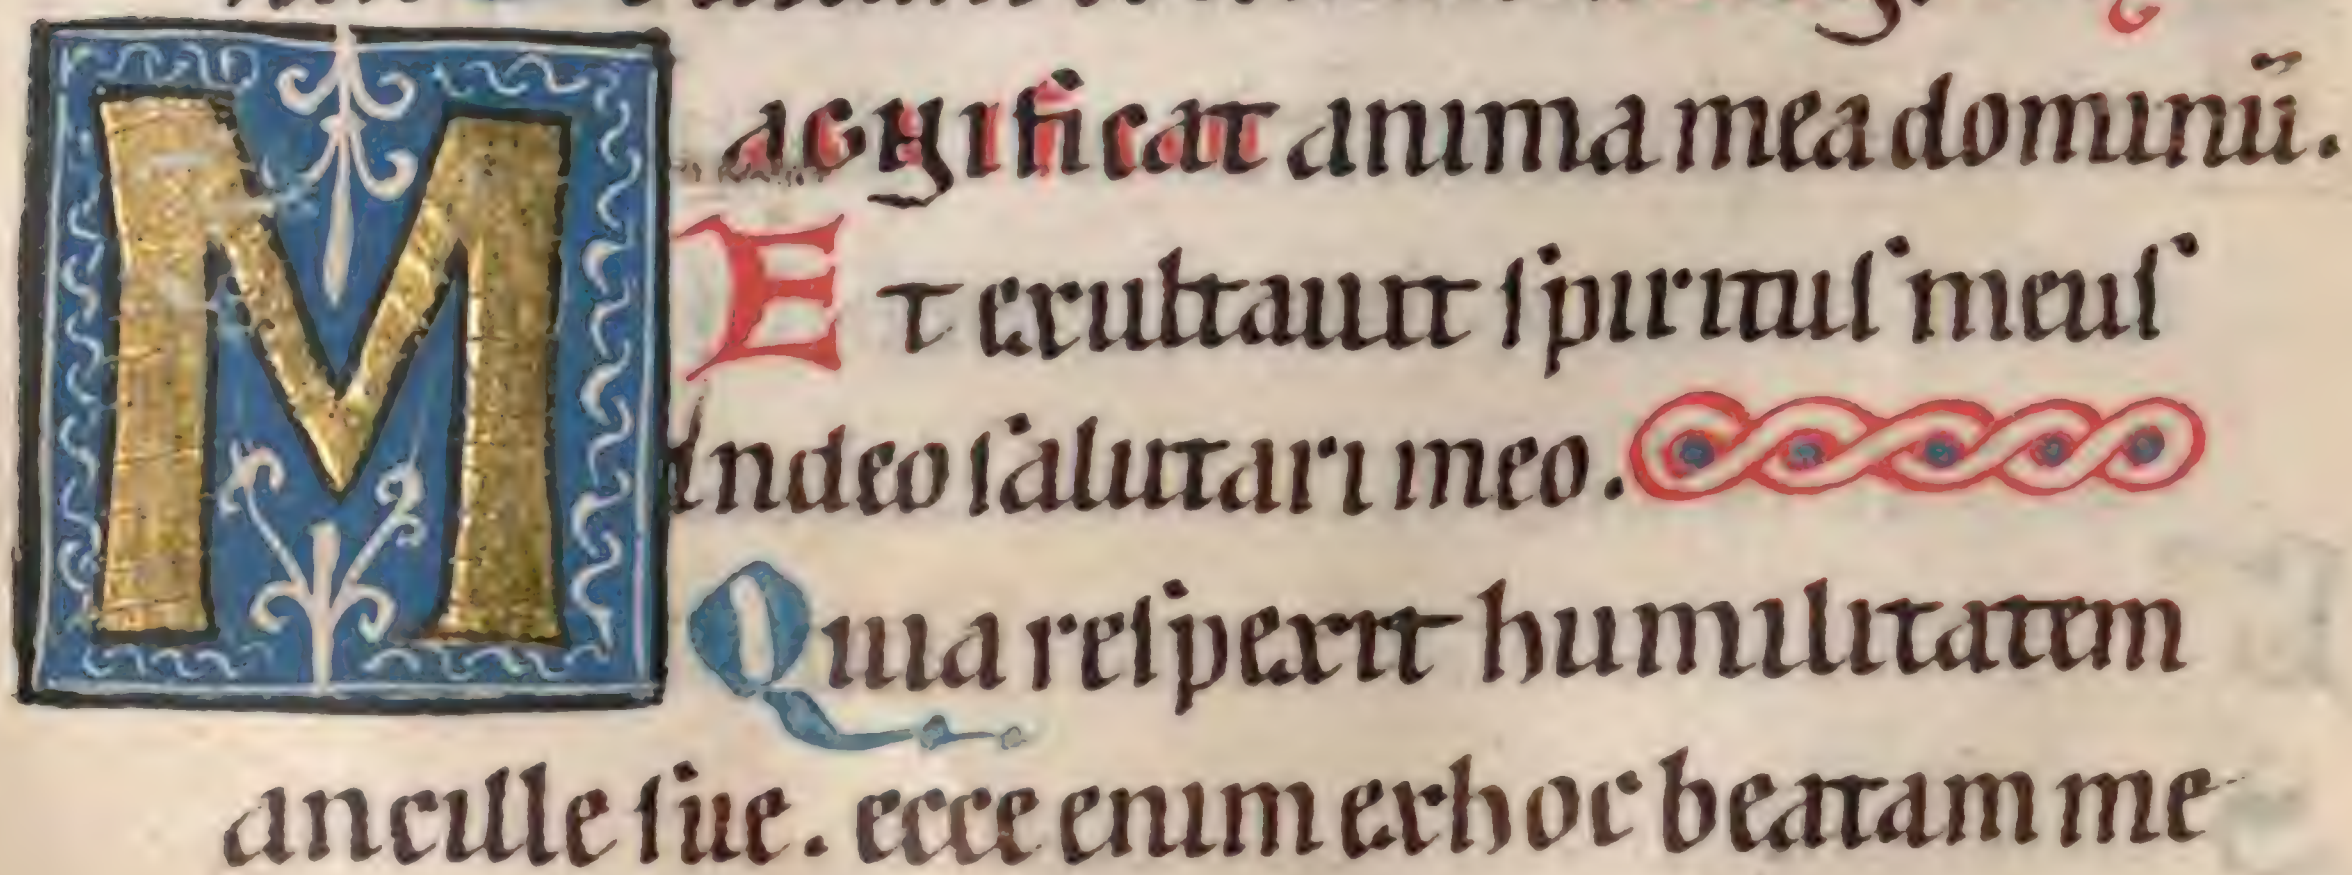 Magnificat anima mea dominū.
Et exultauit spiritus meus
in deo salutari meo.
Quia respexit humilitatem
ancille sue. ecce enim ex hoc beatam me